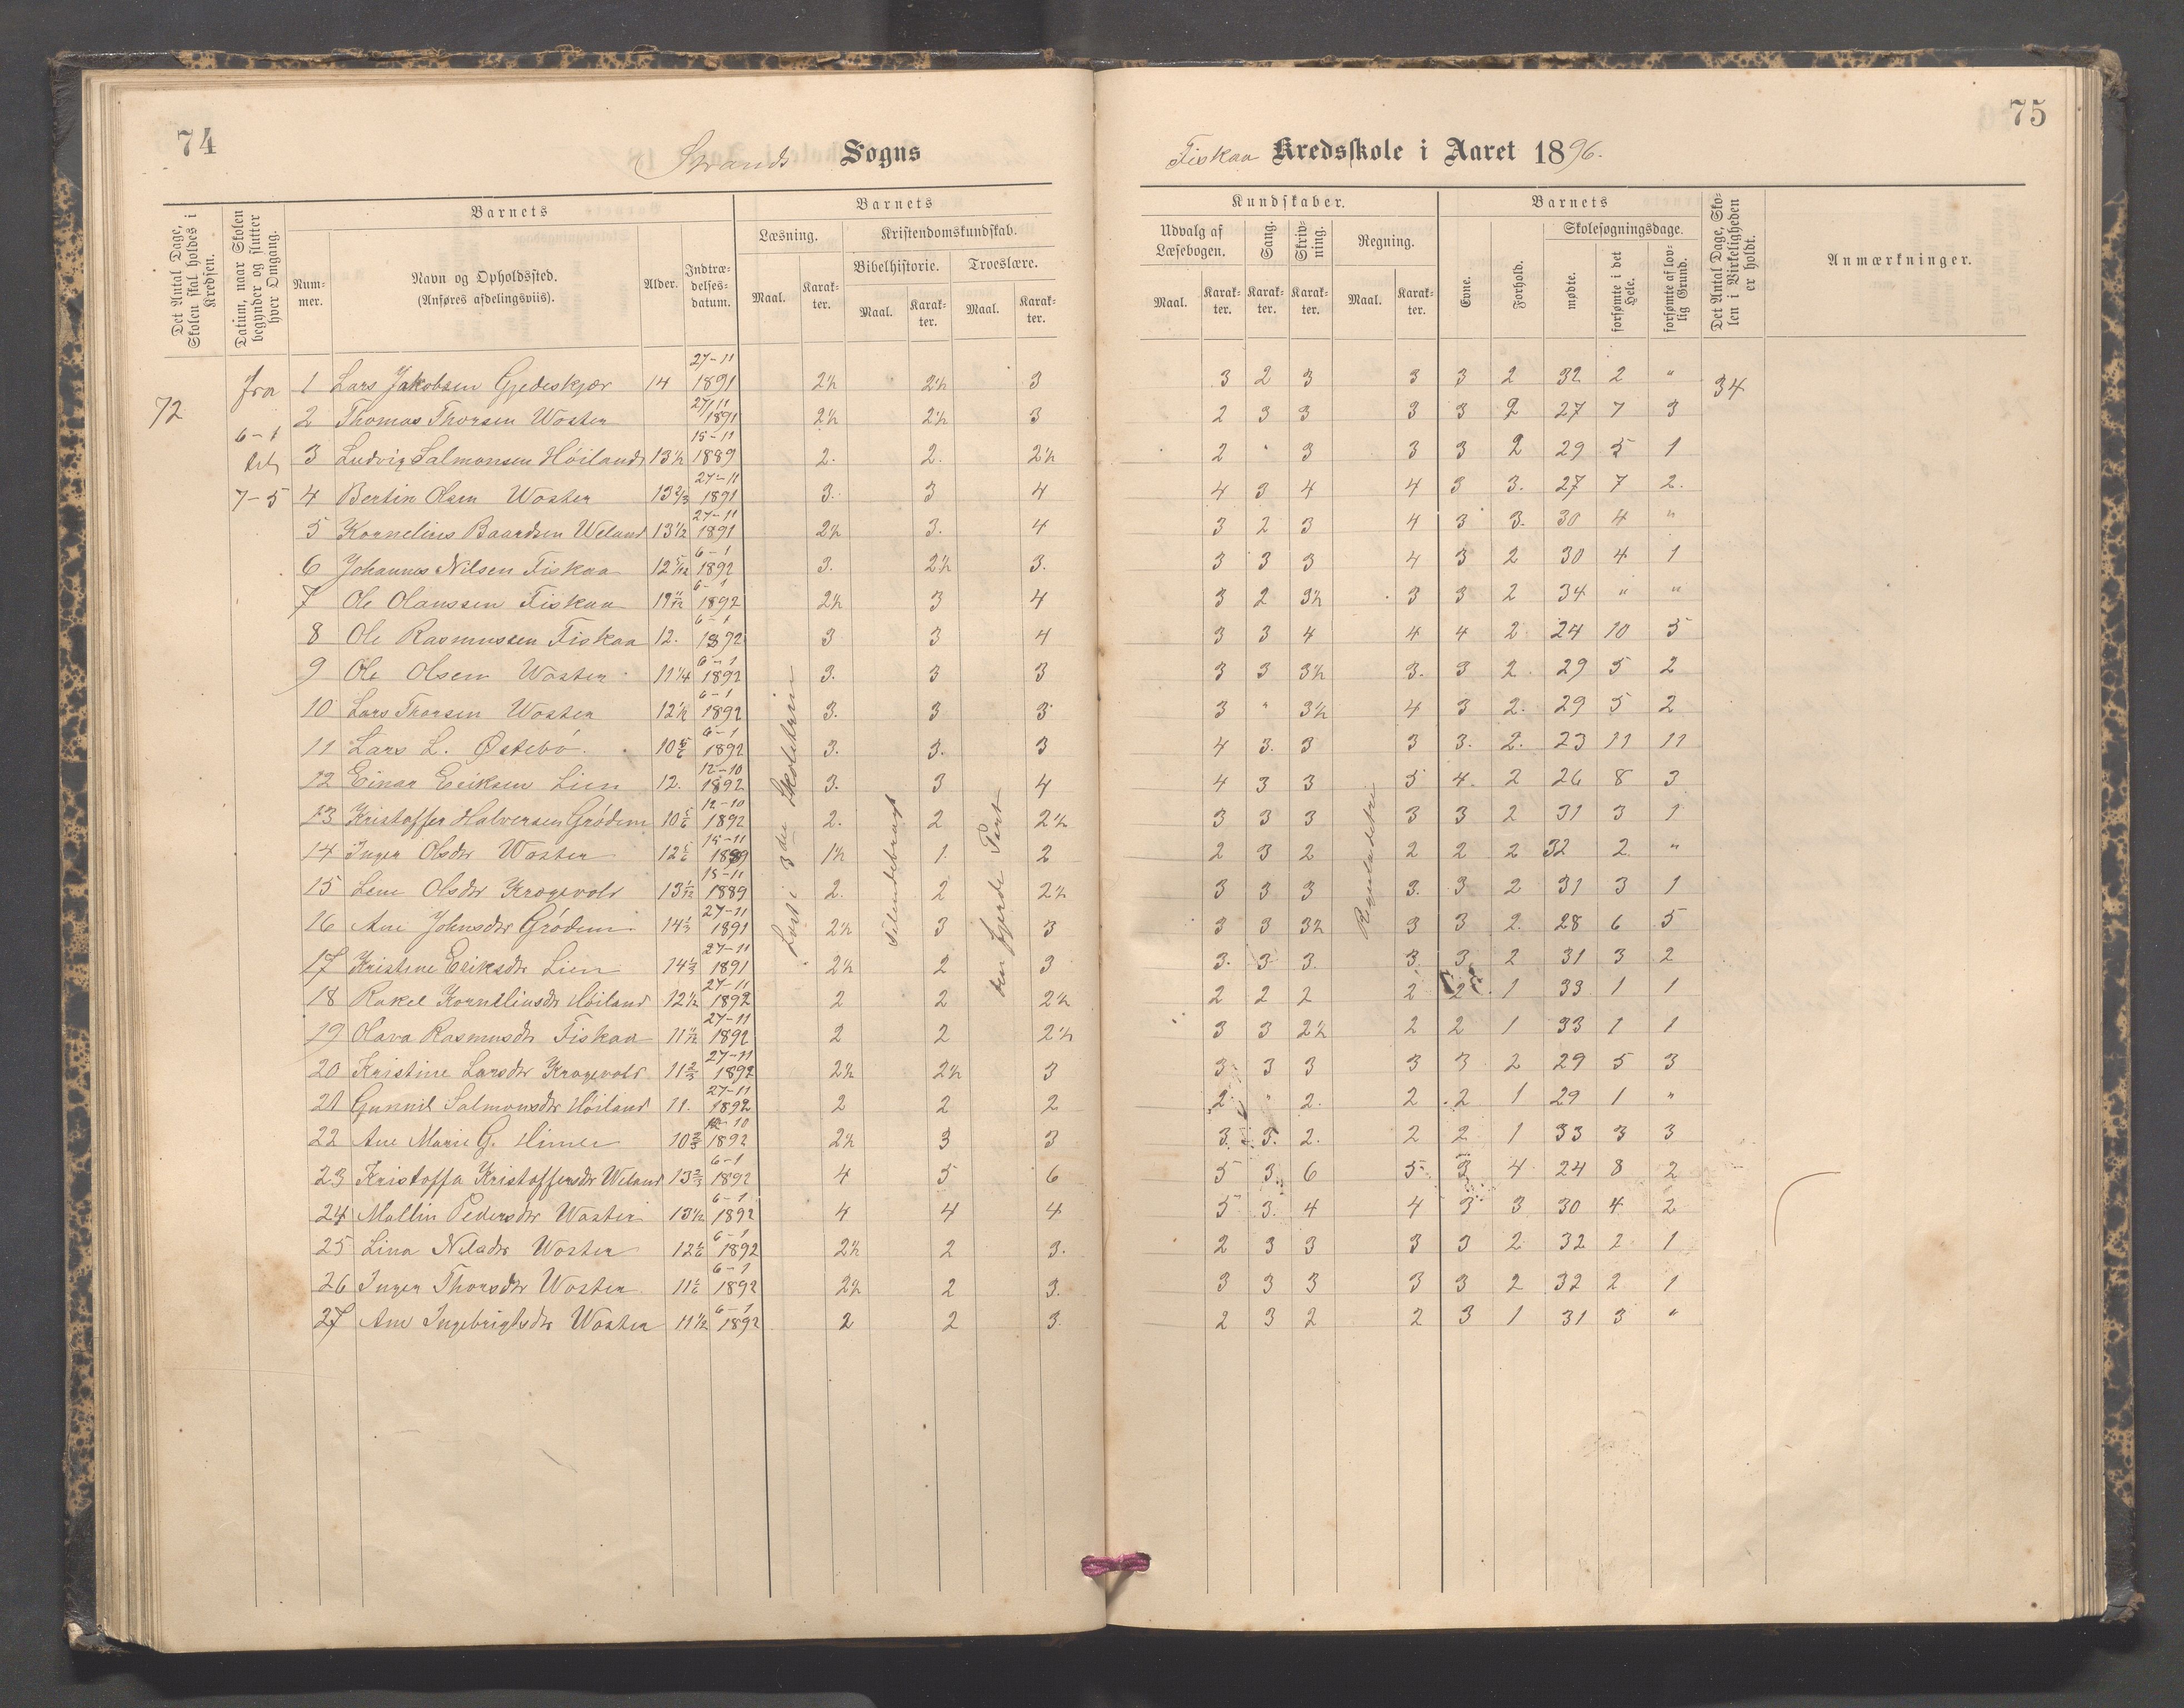 74
75
Strands Sogns
Fiskaa Kredsskole i Aaret 1896.
Det Antal Dage, Skolen skal holdes i Kredsen.
Datum, naar Skolen begynder og slutter hver Omgang.
Barnets
Nummer.
Navn og Opholdssted.
(Anføres afdelingsviis).
Alder.
Indtrædelsesdatum.
Barnets
Læsning.
Maal. Karakter.
Kristendomskundskab.
Bibelhistorie. Troeslære.
Maal. Karakter. Maal. Karakter.
Kundskaber.
Udvalg af Læsebogen.
Maal. Karakter.
Sang. Karakter.
Skrivning. Karakter.
Regning.
Maal. Karakter.
Barnets
Evne. Forhold.
Skolesøgningsdage.
mødte. forsømte i det Hele. forsømte af lovlig Grund.
Det Antal Dage, Skolen i Virkeligheden er holdt.
Anmærkninger.
72
fra
6-1
7-5
34
1 Lars Jakobsen Gjedeskjær 14 27-11 1891 2½ 2½ 3 3 2 3 3 3 2 32 2 "
2 Thomas Thorsen Woster 27/11 1891 2½ 2½ 3 2 3 3 3 3 2 27 7 3
3 Ludvig Salmonsen Höiland 13½ 15-11 1889 2. 2. 2½ 2 " 3 3 3 2 29 5 1
4 Bertin Olsen Woster 13⅔ 27-11 1891 3. 3 4 4 3 4 4 3 3. 27 7 2.
5 Kornelius Baardsen Weland 13½ 27-11 1891 2½ 3. 4 3 2 3 4 3 3. 30 4 "
6 Johannes Nilsen Fiskaa 12 5/12 6-1 1892 3. 2½ 3. 3 3 3 4 3 2 30 4 1
7 Ole Olaussen Fiskaa 6-1 1892 2½ 3 4 3 2 3½ 3 3 2 34 " "
8 Ole Rasmussen Fiskaa 12. 6-1 1892 3 3 4 3 3 4 4 4 2 24 10 5
9 Ole Olsen Woster 11¼ 6-1 1892 3. 3 3 3 3 3½ 3. 3 2. 29 5 2
10 Lars Thorsen Woster 12½ 6-1 1892 3. 3 3 3 " 3½ 4 3 2. 29 5 2
11 Lars L. Østebö. 10 5/6 6-1 1892 3. 3. 3 4 3. 3 3 3. 2. 23 11 11
12 Einar Eriksen Lien 12. 12-10 1892 3. 3 4 4 3 3 5 4. 2 26 8 3
13 Kristoffer Halversen Grödem 10 5/6 12-10 1892 2. 2 2½ 3 3 3 3 3 2 31 3 1
14 Inger Olsdtr Woster 12 5/6 15-11 1889 1½ 1. 2 2 3 2 2 2 2 32 2. "
15 Lene Olsdtr Kragevold 13 1/12 15-11 1889 2. 2 2½ 3 3 3 3. 3 2 31 3 1
16 Ane Johnsdtr Grödem 14⅓ 27-11 1891 2½ 3 3 3 3 3½ 3 3 2. 28 6 5
17 Kristine Eriksdtr Lien 14⅓ 27-11 1891 2½ 2 3 3. 3 3. 3. 3. 2 31 3 2
18 Rakel Korneliusdtr Höiland 12½ 27-11 1892 2 2 2½ 2 2 2 2 2 1 33 1 1
19 Olava Rasmusdtr Fiskaa 11 11/12 27-11 1892 2 2 2½ 3 3 2½ 2 2 1 33 1 1
20 Kristine Larsdtr Kragevold 11⅔ 27-11 1892 2½ 2½ 3 3 3 3 3 3 2 29 5 3
21 Gunnil Salmonsdtr Höiland 11. 27-11 1892 2 2 2 2. " 2. 2 2 1 29 1 "
22 Ane Marie G. 10⅔ 12-10 1892 2½ 3 3 3. 3. 2. 2 2 1 33 3 3
23 Kristoffa Kristoffersdtr Weland 13⅔ 6-1 1892 4 5 6 5 3. 6 5 3 4 24 8 2
24 Mallin Pedersdtr Woster 13½ 6-1 1892 4 4 4 5 3. 4 4 3 3 30 4 2
25 Lina Nilsdtr Woster 12 1/6 6-1 1892 2½ 2 3. 2 3 3 3 3 2 32 2 1
26 Inger Thorsdtr Woster 11 1/6 6-1 1892 2½ 2 3. 3 3 3 3 3 2 32 2 1
27 Ane Ingebrigtsdtr Woster 11½ 6-1 1892 2 2 3. 2 3 2 2 3 1 31 3 "
Læst i 3die Skoletrin
den fjerde Part
Reguladetri